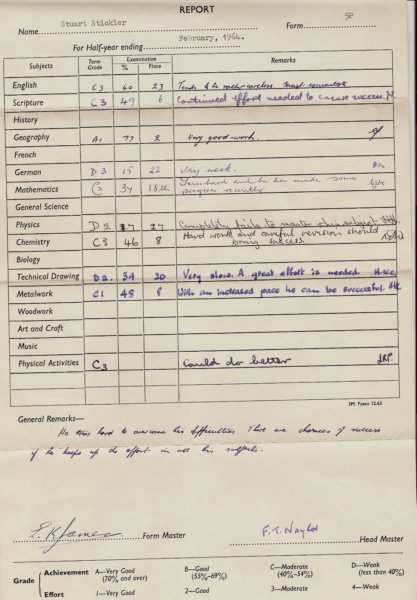 REPORT
Name Stuart Stickler Form 5P
For Half-year ending February, 1964.
Subjects Term Grade Examination % Place Remarks
English C3 40 23 Tends to be rather careless. Must concentrate
Scripture C3 49 6 Continued effort needed to ensure success.
History
Geography A1 77 2 Very good work.
French
German D3 15 22 Very weak.
Mathematics C2 34 18th and he has made some
progress recently
General Science
Physics D2 27 Completely fails to master this subject
Chemistry C3 46 8 Hard work and careful revision should
bring success.
Biology
Technical Drawing D2 34 20 Very slow. A great effort is needed
Metalwork C1 48 8 With an increased pace he can be successful.
Woodwork
Art and Craft
Music
Physical Activities C3 Could do better
General Remarks—
He tries hard to overcome his difficulties. There are chances of success
if he keeps up the effort in all his subjects.
E. K. James Form Master F. T. Naylor Head Master
Grade Achievement A—Very Good (70% and over) B—Good (55%–69%) C—Moderate (40%–54%) D—Weak (less than 40%)
Effort 1—Very Good 2—Good 3—Moderate 4—Weak